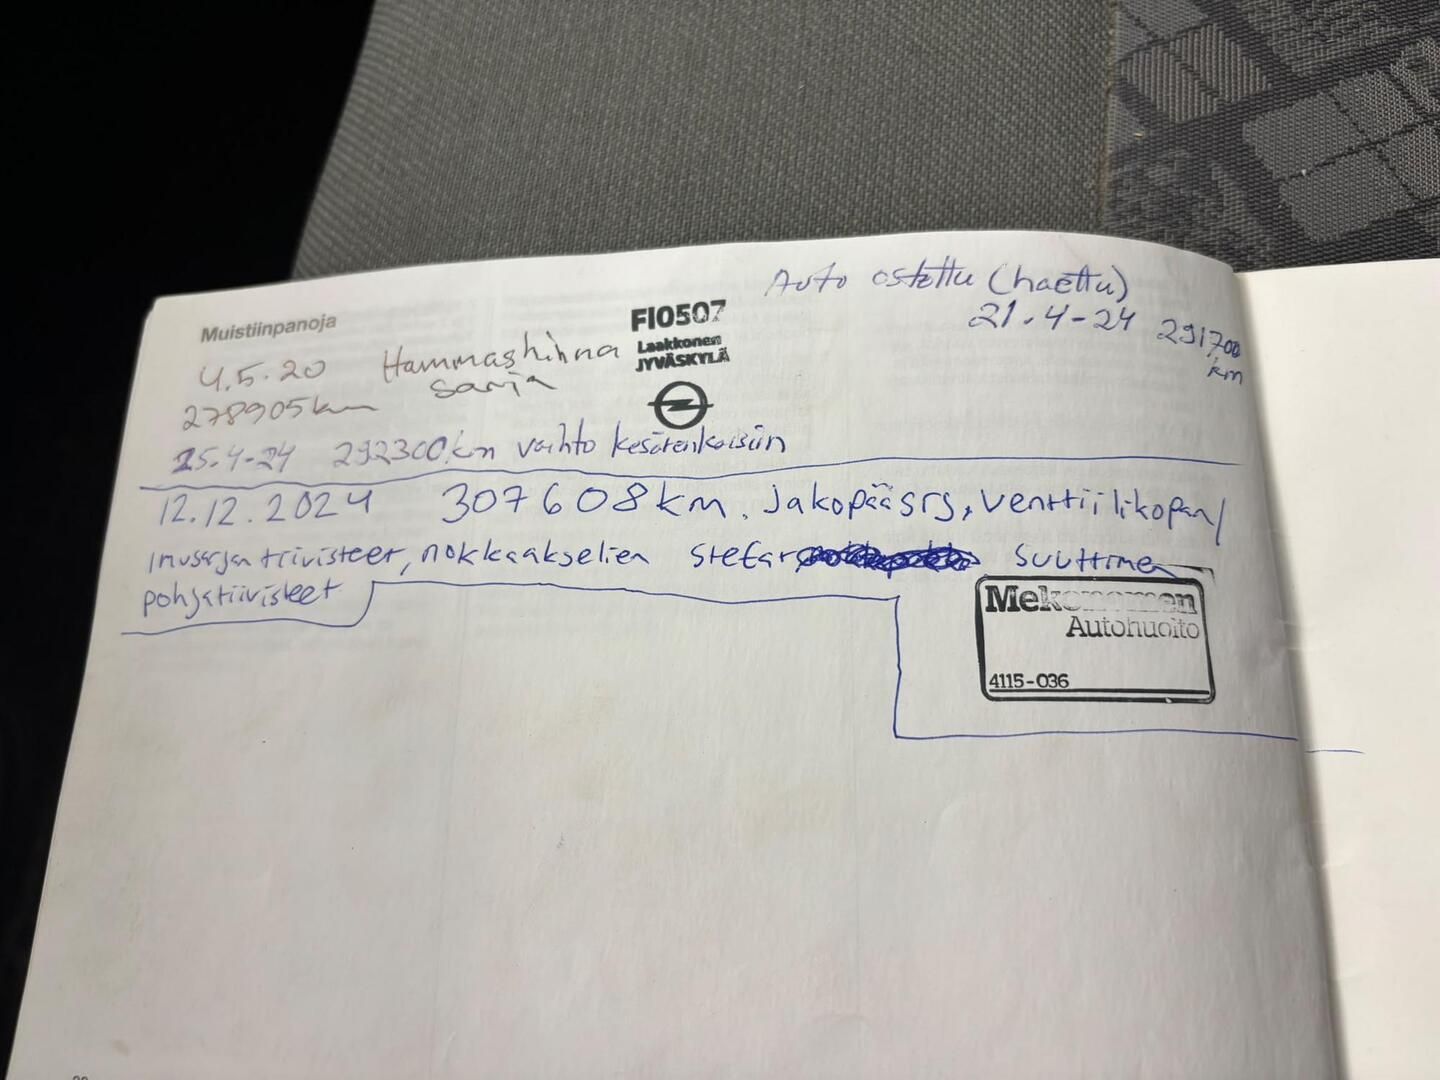 Muistiinpanoja
Auto ostettu (haettu)
21.4-24 291700
km
FI0507
Laakkonen
JYVÄSKYLÄ
4.5.20 Hammashihna
278905km sarja
25.4-24 292300km vaihto kesärenkaisiin
12.12.2024 307608km. Jakopääsrj, venttiilikopan/
imusarjan tiivisteet, nokkaakselien stefat suuttimen
pohjatiivisteet
Mekonomen
Autohuolto
4115-036